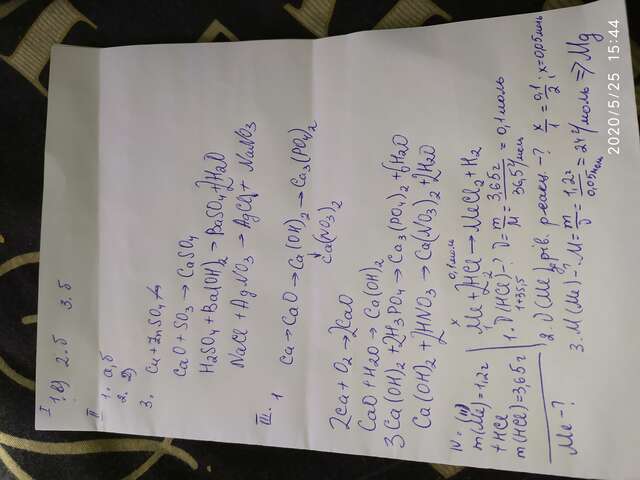 I
1. в) 2. б 3. б
II
1. а, б
2. 2)
3. Cu + ZnSO4 ↛
CaO + SO3 → CaSO4
H2SO4 + Ba(OH)2 → BaSO4 + 2H2O
NaCl + AgNO3 → AgCl + NaNO3
III. 1 Ca → CaO → Ca(OH)2 → Ca3(PO4)2
↓
Ca(NO3)2
2Ca + O2 → 2CaO
CaO + H2O → Ca(OH)2
3Ca(OH)2 + 2H3PO4 → Ca3(PO4)2 + 6H2O
Ca(OH)2 + 2HNO3 → Ca(NO3)2 + 2H2O
IV.
m(Me) = 1,2г
+ HCl
m(HCl) = 3,65г
Me - ?
x 0,1моль
Me + 2HCl → MeCl2 + H2
1 2
1. ν(HCl) - ? ν = m/M = 3,65г/36,5г/моль = 0,1моль
1+35,5
2. ν(Me) з рів. реакц - ? x/1 = 0,1/2; x = 0,05моль
3. M(Me) - ? M = m/ν = 1,2г/0,05моль = 24г/моль ⇒ Mg
2020/5/25 15:44